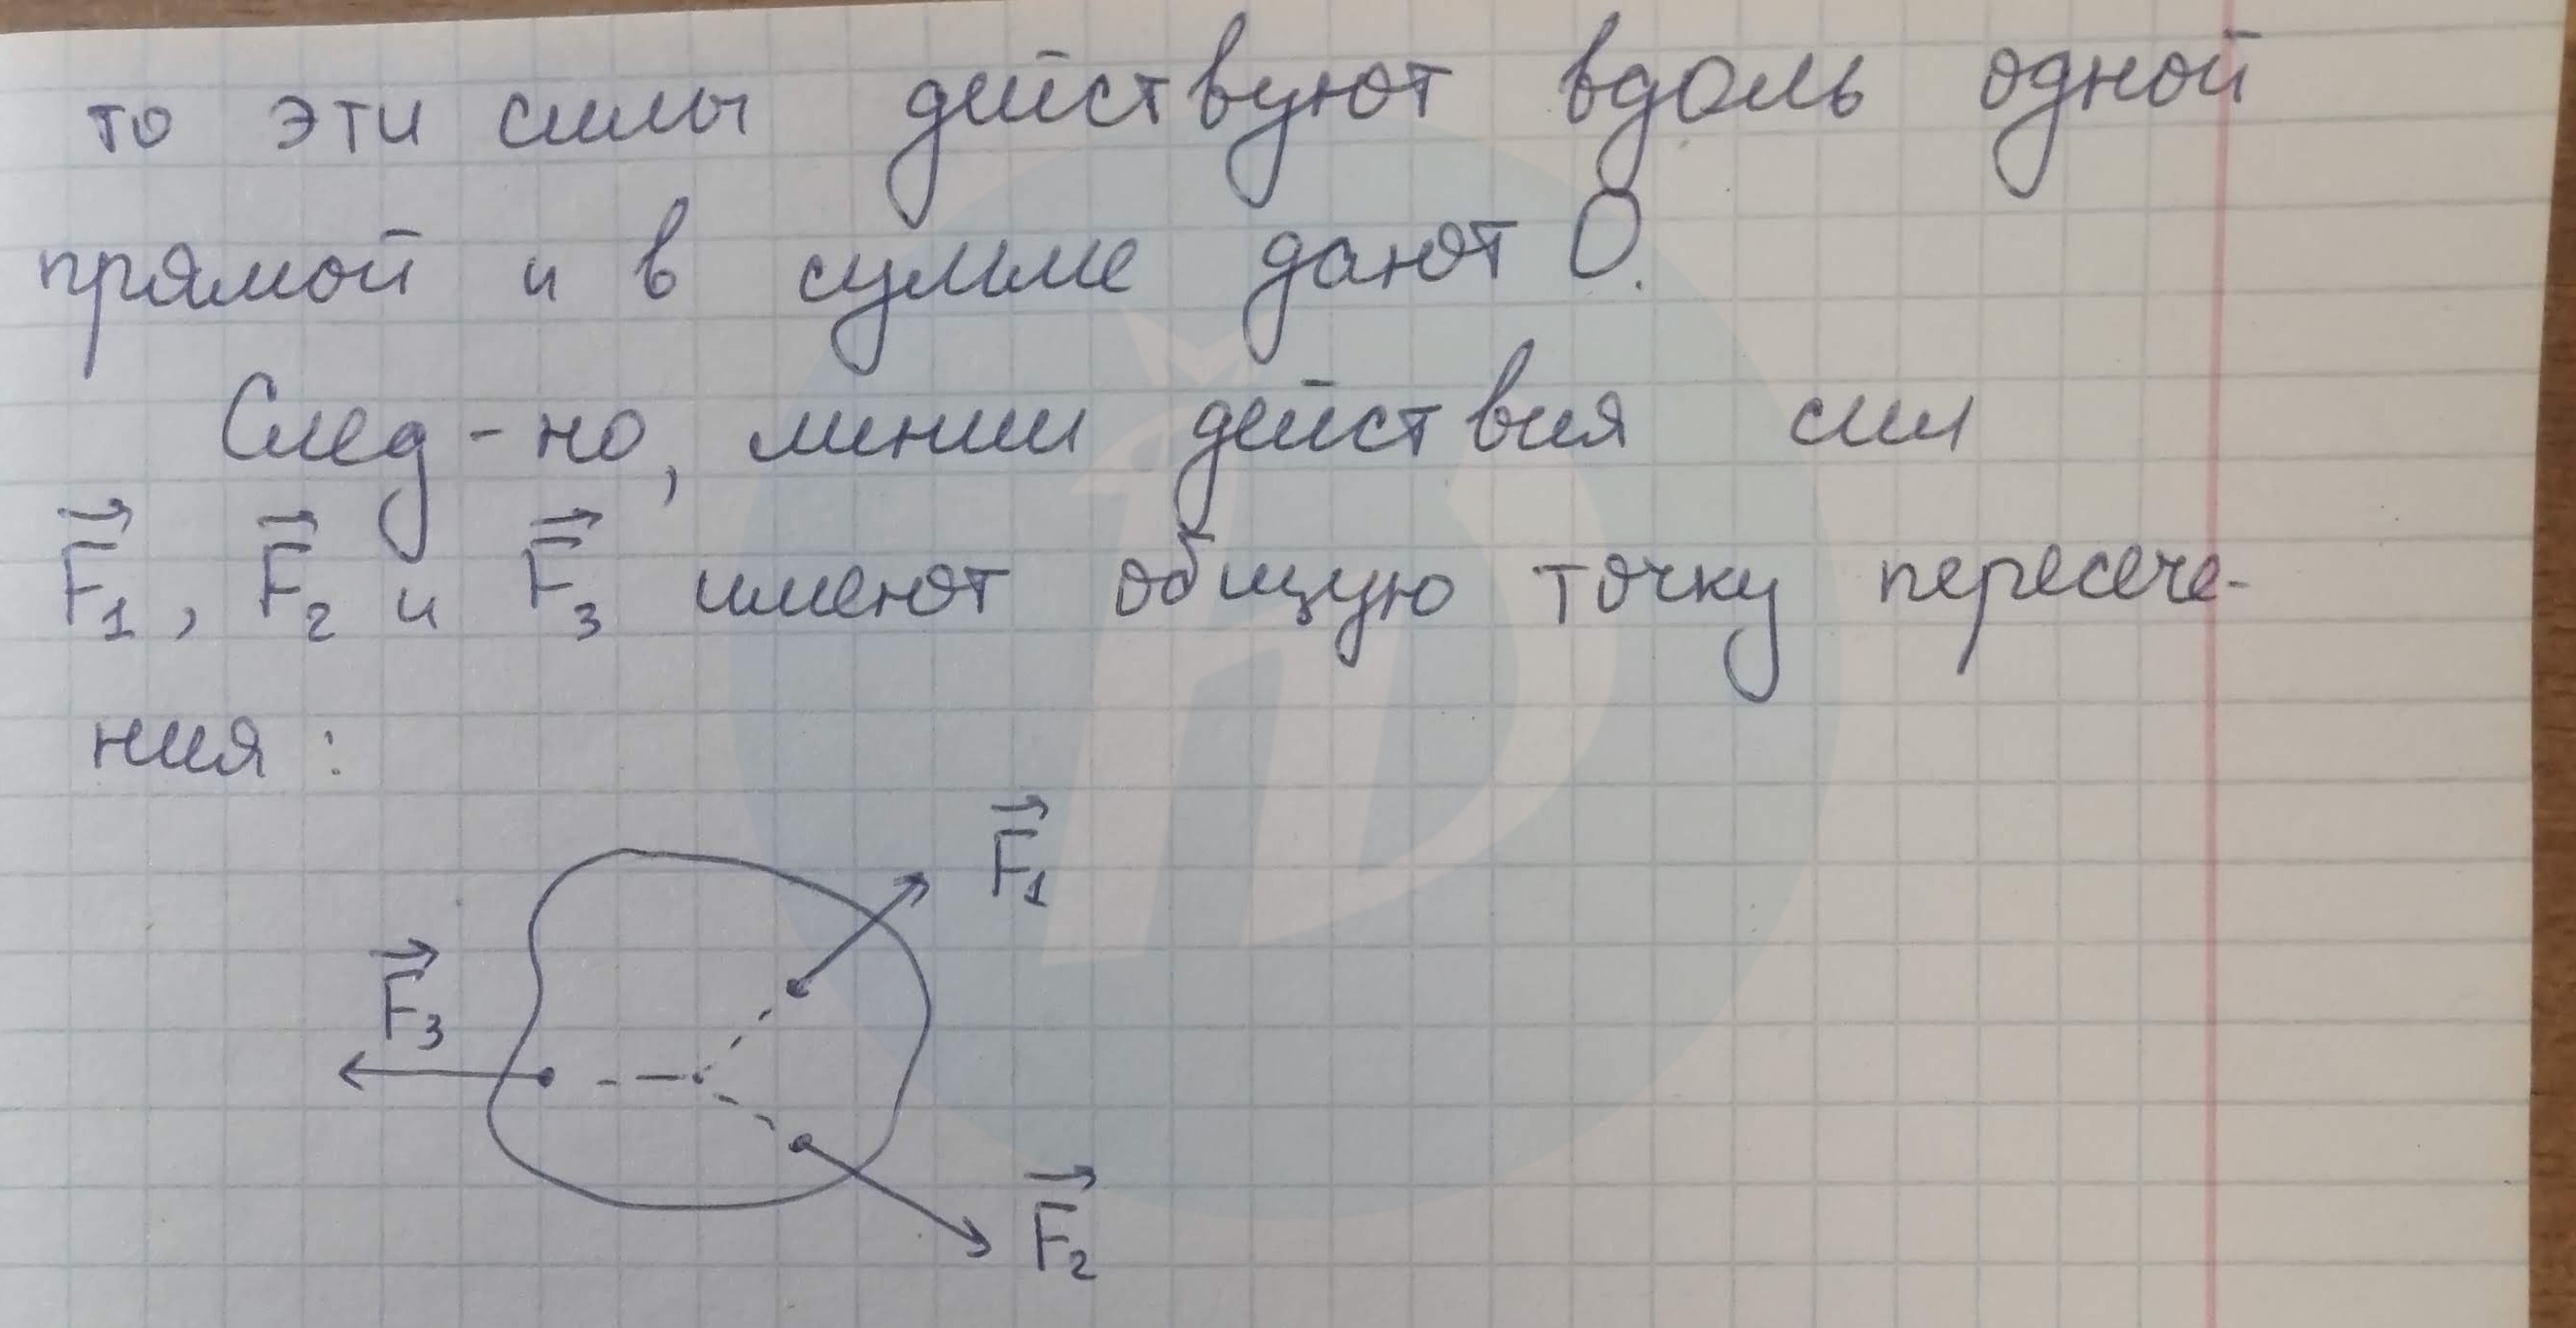 то эти силы действуют вдоль одной
прямой и в сумме дают 0.
След-но, линии действия сил
F⃗₁, F⃗₂ и F⃗₃ имеют общую точку пересече-
ния:
F⃗₁
F⃗₃
F⃗₂